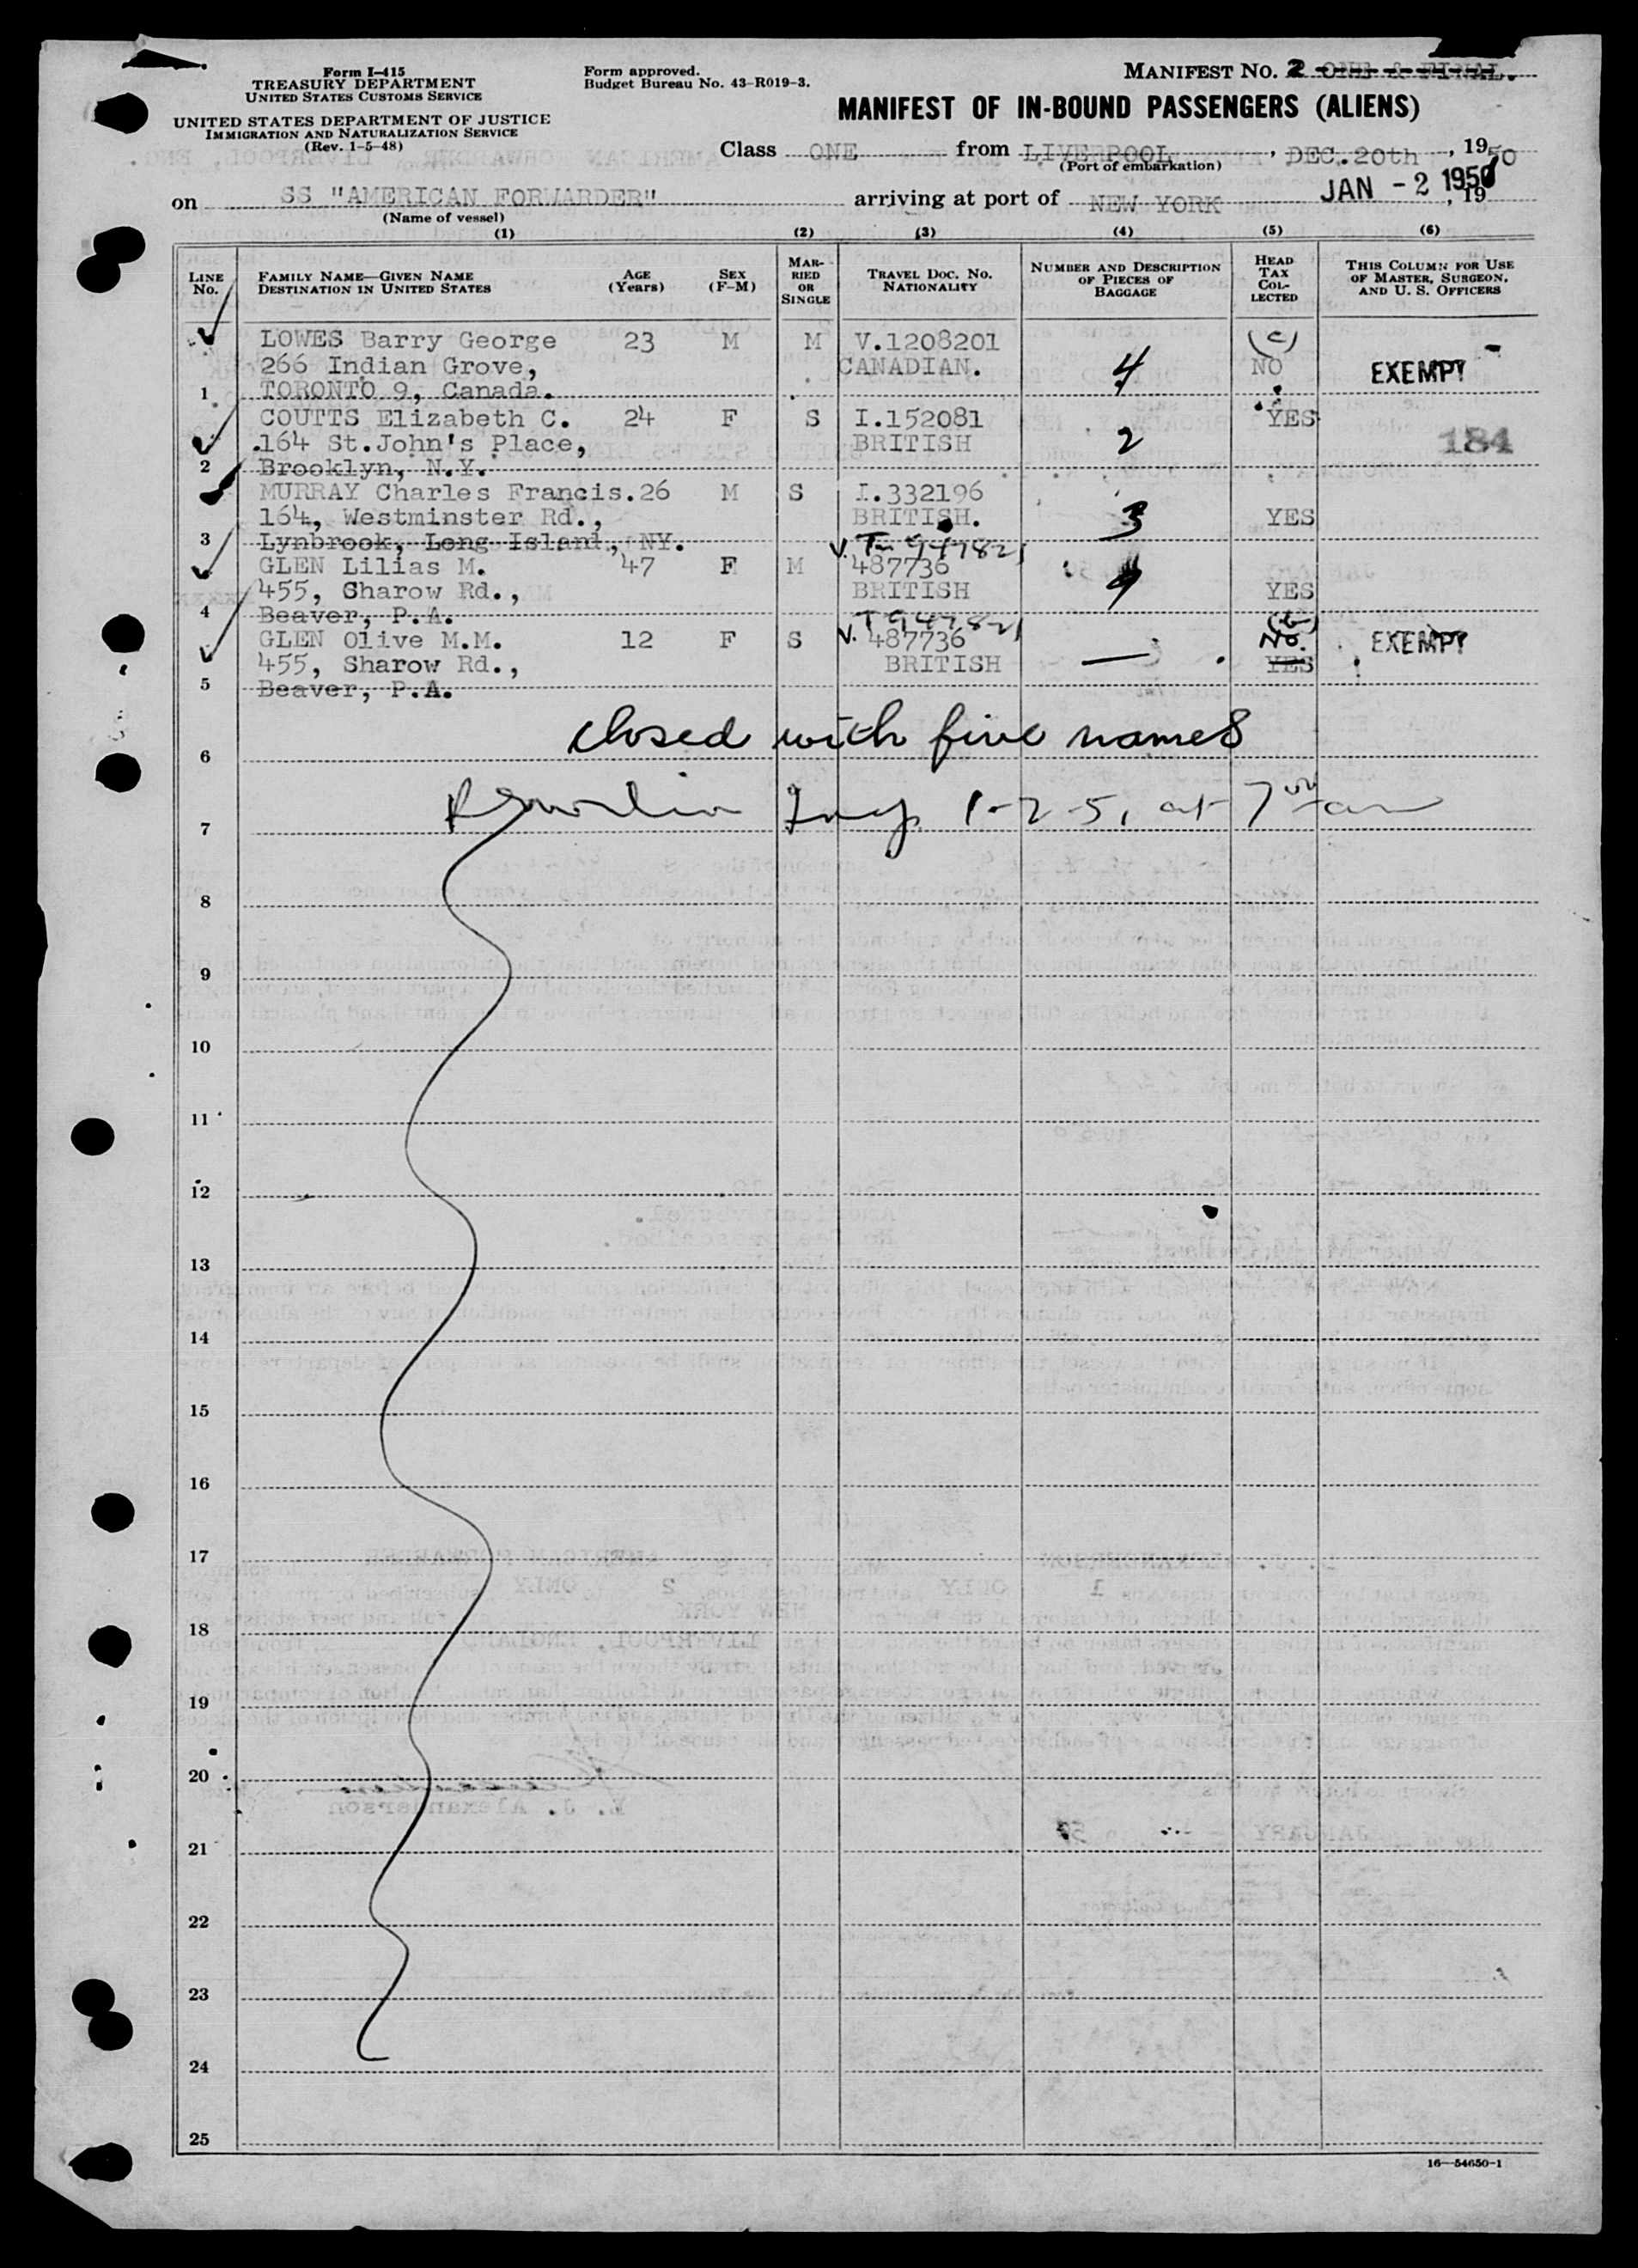 Form I-415
TREASURY DEPARTMENT
UNITED STATES CUSTOMS SERVICE
UNITED STATES DEPARTMENT OF JUSTICE
IMMIGRATION AND NATURALIZATION SERVICE
(Rev. 1-5-48)
Form approved.
Budget Bureau No. 43-R019-3.
MANIFEST NO. 2 ONE & FINAL.
MANIFEST OF IN-BOUND PASSENGERS (ALIENS)
Class ONE from LIVERPOOL, DEC.20th, 1950
(Port of embarkation)
on SS "AMERICAN FORWARDER" arriving at port of NEW YORK JAN -2 1950, 19
(Name of vessel)
(1) (2) (3) (4) (5) (6)
LINE No. FAMILY NAME—GIVEN NAME DESTINATION IN UNITED STATES AGE (Years) SEX (F-M) MARRIED OR SINGLE TRAVEL DOC. NO. NATIONALITY NUMBER AND DESCRIPTION OF PIECES OF BAGGAGE HEAD TAX COLLECTED THIS COLUMN FOR USE OF MASTER, SURGEON, AND U. S. OFFICERS
LOWES Barry George 23 M M V.1208201 (c)
266 Indian Grove, CANADIAN. 4 NO EXEMPT
1 TORONTO 9, Canada.
COUTTS Elizabeth C. 24 F S I.152081 YES
164 St.John's Place, BRITISH 2 184
2 Brooklyn, N.Y.
MURRAY Charles Francis. 26 M S I.332196
164, Westminster Rd., BRITISH. 3 YES
3 Lynbrook, Long Island, NY.
GLEN Lilias M. 47 F M V. 487736
455, Sharow Rd., BRITISH 4 YES
4 Beaver, P.A. T 947821
GLEN Olive M.M. 12 F S V. 487736 No. EXEMPT
455, Sharow Rd., BRITISH — YES
5 Beaver, P.A.
closed with five names
6
7 1-2-51 at 7
8
9
10
11
12
13
14
15
16
17
18
19
20
21
22
23
24
25
16—54650-1